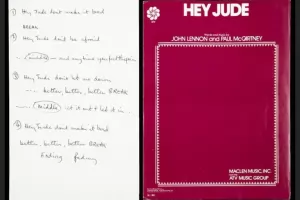 1) Hey Jude don't make it bad
BREAK
2) Hey Jude don't be afraid
(middle) – and anytime you feel the pain
3) Hey Jude don't let me down
better, better, better BREAK
(middle) let it out & let it in
4) Hey Jude don't make it bad
better, better, better BREAK
Ending fading
HEY JUDE
Words and Music by
JOHN LENNON and PAUL McCARTNEY
MACLEN MUSIC, INC.
ATV MUSIC GROUP